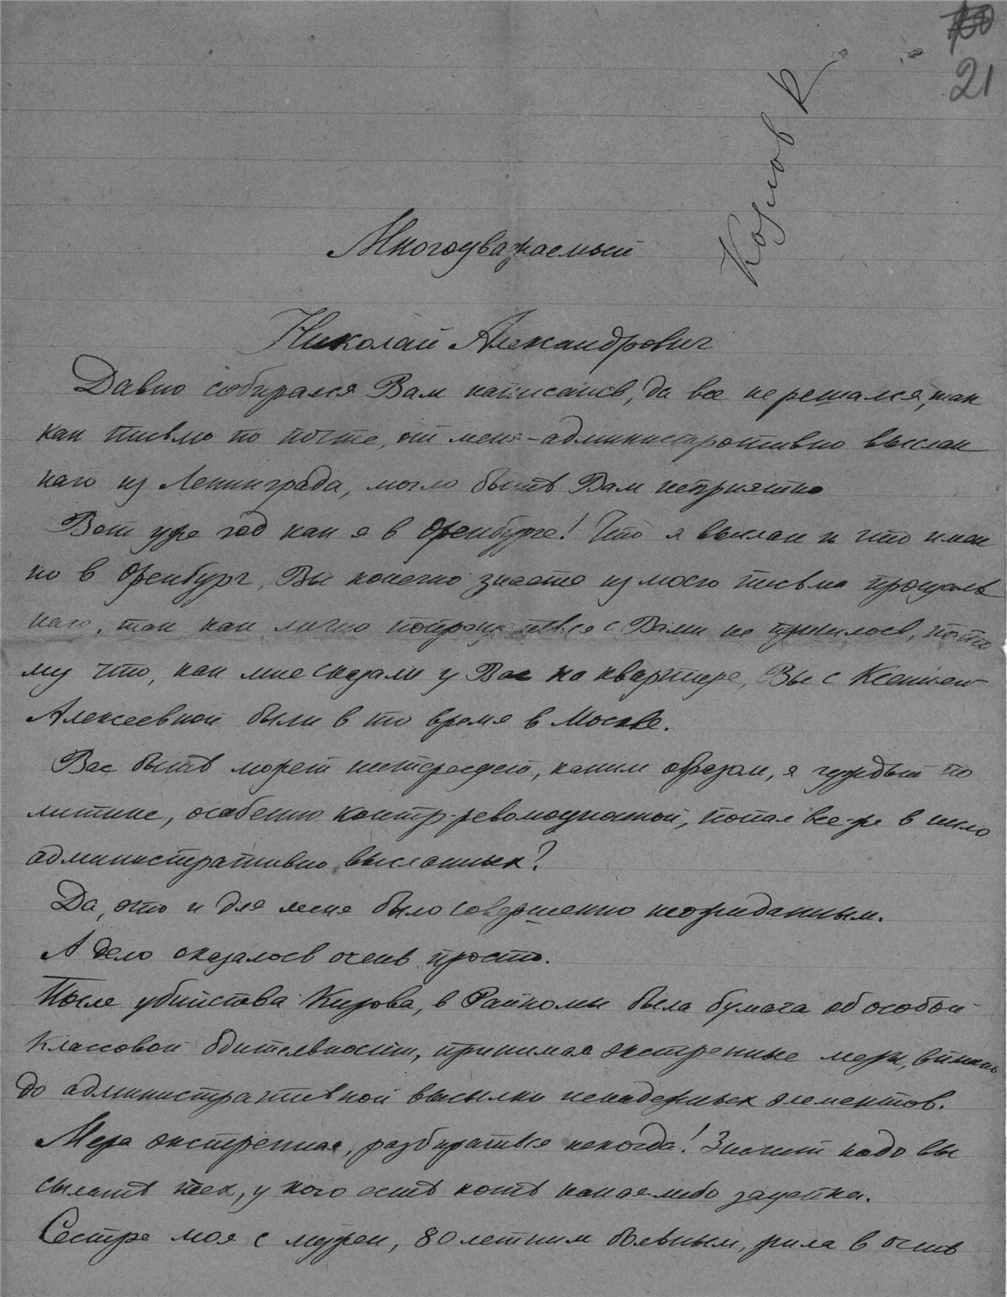 21
Козлов К
Многоуважаемый
Николай Александрович
Давно собирался Вам написать, да все не решался, так
как письмо по почте, от меня - административно выслан
ного из Ленинграда, могло быть Вам неприятно
Вот уже год как я в Оренбурге! Что я выслан и что имен
но в Оренбург, Вы конечно знаете из моего письма прощаль
наго, так как лично попрощаться с Вами не пришлось, пото
му что, как мне сказали у Вас на квартире, Вы с Ксенией
Алексеевной были в то время в Москве.
Вас быть может интересует, каким образом, я чуждый по
литике, особенно контр-революционной, попал все-же в число
административно высланных?
Да, это и для меня было совершенно неожиданным.
А дело оказалось очень просто.
После убийства Кирова, в Райкомы была бумага об особой
классовой бдительности, принимая экстренные меры, вплоть
до административной высылки ненадежных элементов.
Мера экстренная, разбираться некогда! Значит надо вы
сылать тех, у кого есть хоть какая либо зацепка.
Сестра моя с мужем, 80 летним больным, жила в очень